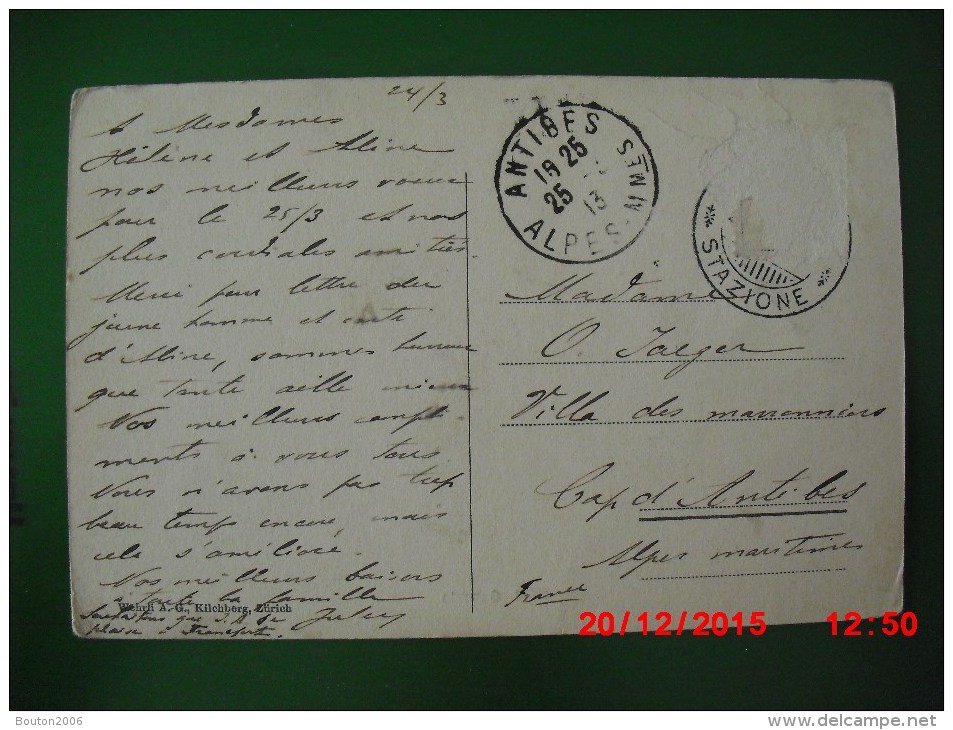 24/3
A Mesdames
Hélène et Aline
nos meilleurs voeux
pour le 25/3 et nos
plus cordiales amitiés.
Merci pour lettre du
jeune homme et carte
d'Aline, sommes heureux
que tante aille mieux
Nos meilleurs compli-
ments à vous tous
Nous n'avons pas trop
beau temps encore, mais
cela s'améliore.
Nos meilleurs baisers
à toute la famille
Wehrli A.-G., Kilchberg, Zürich
plaise à
ANTIBES
18 25
25 13
ALPES-MMES
* STAZIONE *
Madame
O. Jaeger
Villa des marronniers
Cap d'Antibes
Alpes maritimes
France
20/12/2015 12:50
Bouton2006
delcampe.net